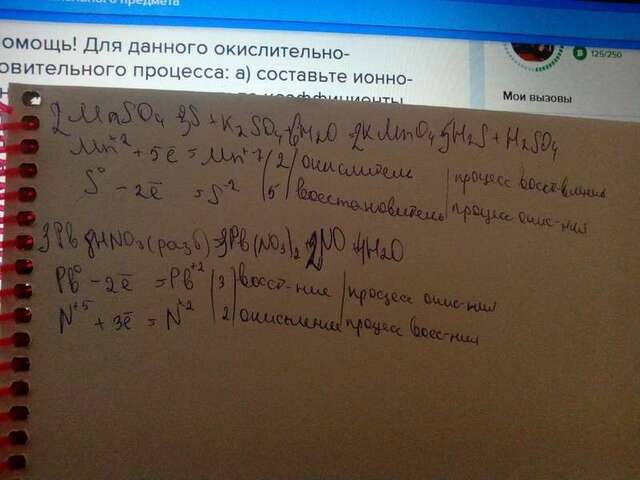 льного предмета
омощь! Для данного окислительно-
овительного процесса: а) составьте ионно-
коэффициенты
125/250
Мои вызовы
2MnSO4 S + K2SO4 6H2O 2KMnO4 5H2S + H2SO4
Mn+2 + 5ē = Mn+7 | 2 | окислитель | процесс восст-вления
S0 - 2ē = S-2 | 5 | восстановитель | процесс окис-ния
3Pb 8HNO3 (разб) = 3Pb(NO3)2 2NO 4H2O
Pb0 - 2ē = Pb+2 | 3 | восст-ние | процесс окис-ния
N+5 + 3ē = N+2 | 2 | окисление | процесс восс-ния